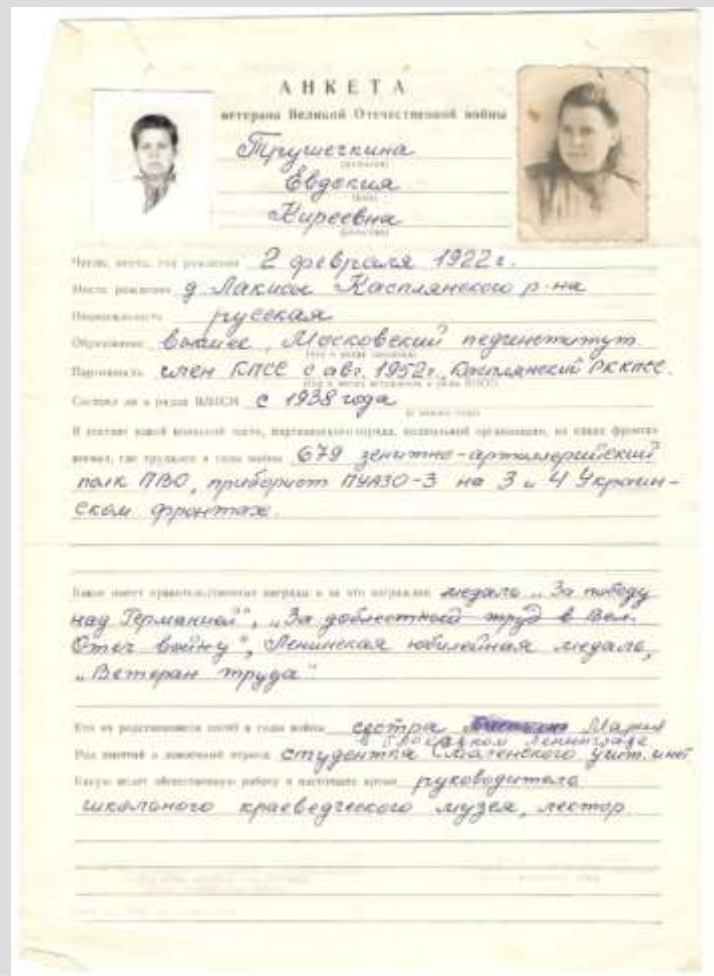 АНКЕТА
ветерана Великой Отечественной войны
Трушечкина
(фамилия)
Евдокия
(имя)
Киреевна
(отчество)
Число, месяц, год рождения 2 февраля 1922 г.
Место рождения д. Лакисы Касплянского р-на
Национальность русская
Образование высшее, Московский пединститут
Партийность член КПСС с авг. 1952г, Касплянский РК КПСС.
Состоял ли в рядах ВЛКСМ с 1938 года
В составе какой воинской части, партизанского отряда, подпольной организации, на каких фронтах
воевал, где трудился в годы войны 679 зенитно-артиллерийский
полк ПВО, приборист ПУАЗО-3 на 3 и 4 Украин-
ском фронтах.
Какие имеет правительственные награды и за что награжден медаль „За победу
над Германией", „За доблестный труд в Вел.
Отеч войну", Ленинская юбилейная медаль,
„Ветеран труда"
Кто из родственников погиб в годы войны сестра Мария
в блокадном Ленинграде
Род занятий в довоенный период студентка Смоленского учит. инст
Какую ведет общественную работу в настоящее время руководитель
школьного краеведческого музея, лектор